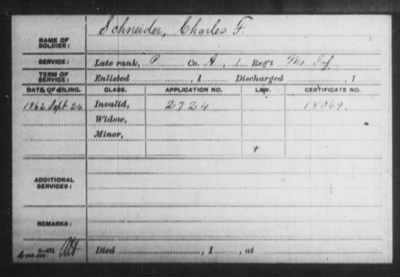 NAME OF SOLDIER: Schneider, Charles F.
SERVICE: Late rank, P Co. A, 1 Reg't Mo. Inf.
TERM OF SERVICE: Enlisted , 1 Discharged , 1
DATE OF FILING. CLASS. APPLICATION NO. LAW. CERTIFICATE NO.
1862 Sept 24 Invalid, 2724 18069.
Widow,
Minor,
ADDITIONAL SERVICES:
REMARKS:
Died , 1 , at